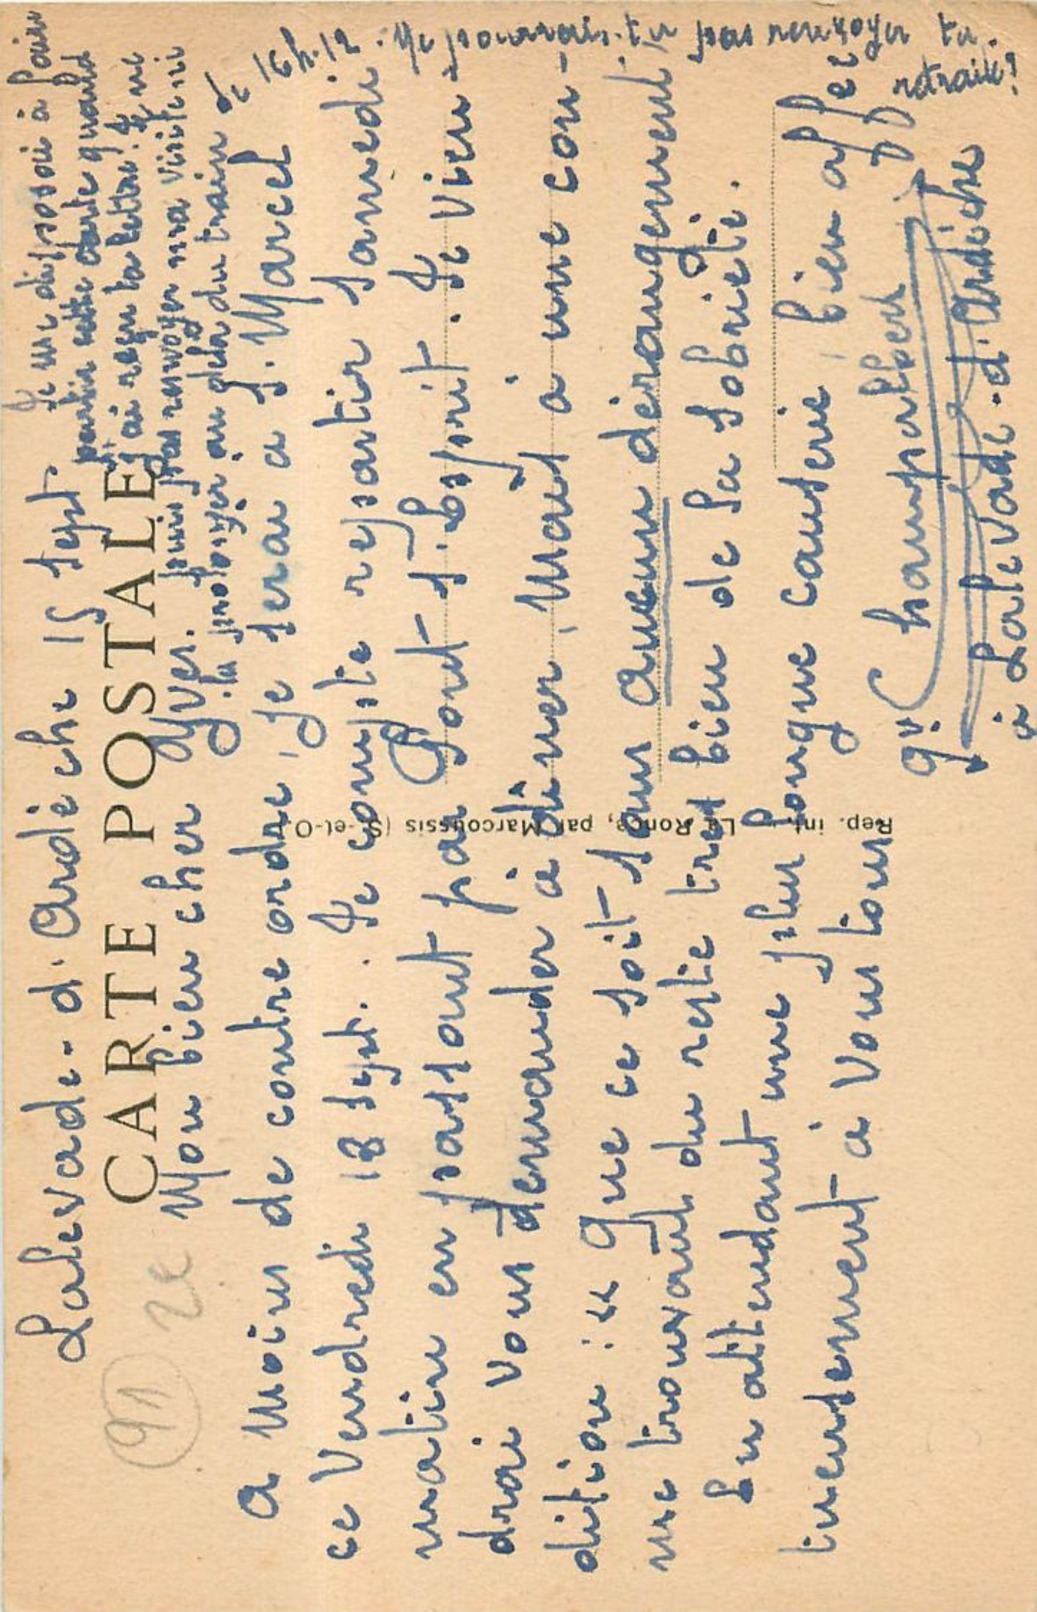 Lalevade-d'Ardèche 15 sept.
CARTE POSTALE
91 2e
Mon bien cher Yves.
A moins de contre ordre, je serai à S. Marcel
ce Vendredi 18 sept. . Je compte repartir samedi
matin en passant par Pont-S.Esprit. Je vien-
drai vous demander à dîner, mais à une con-
dition : « que ce soit sans aucun dérangement,
me trouvant du reste très bien de la sobriété.
En attendant une plus longue causerie, bien affec
tueusement à vous tous
Gal Champanhet
à Lalevade-d'Ardèche
Je me disposais à faire
partir cette carte quand
j'ai reçu ta lettre. Je ne
puis pas renvoyer ma visite ni
la prolonger au delà du train de
16h.12. Ne pourrais-tu pas renvoyer ta
retraite?
Rep. int. L. Ronco, par Marcoussis (S.-et-O.)